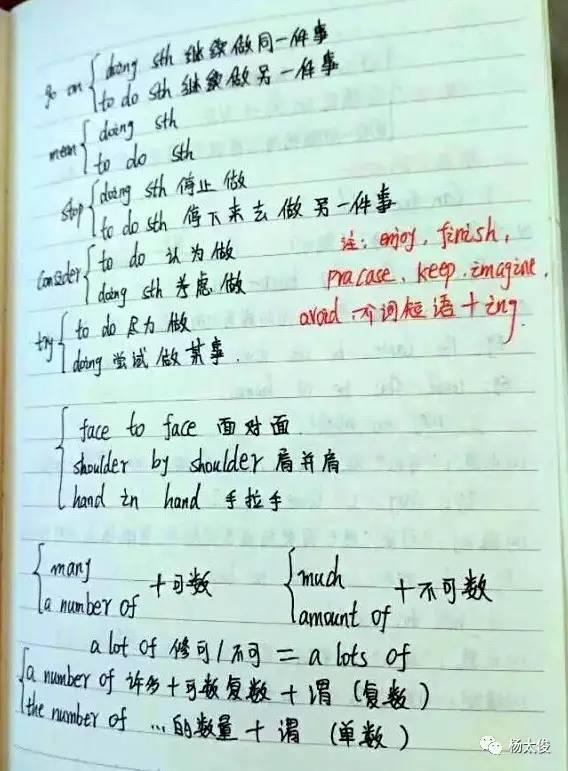 go on { doing sth 继续做同一件事
to do sth 继续做另一件事
mean { doing sth
to do sth
stop { doing sth 停止做
to do sth 停下来去做另一件事
consider { to do 认为做
doing sth 考虑做
try { to do 尽力做
doing 尝试做某事.
注: enjoy, finish,
pracase, keep, imagine,
avoid, 介词短语 + ing.
{ face to face 面对面
shoulder by shoulder 肩并肩
hand in hand 手拉手
{ many
a number of + 可数
{ much
amount of + 不可数
a lot of 修可/不可 = a lots of
{ a number of 许多+可数复数 + 谓 (复数)
the number of ...的数量 + 谓 (单数)
杨太俊